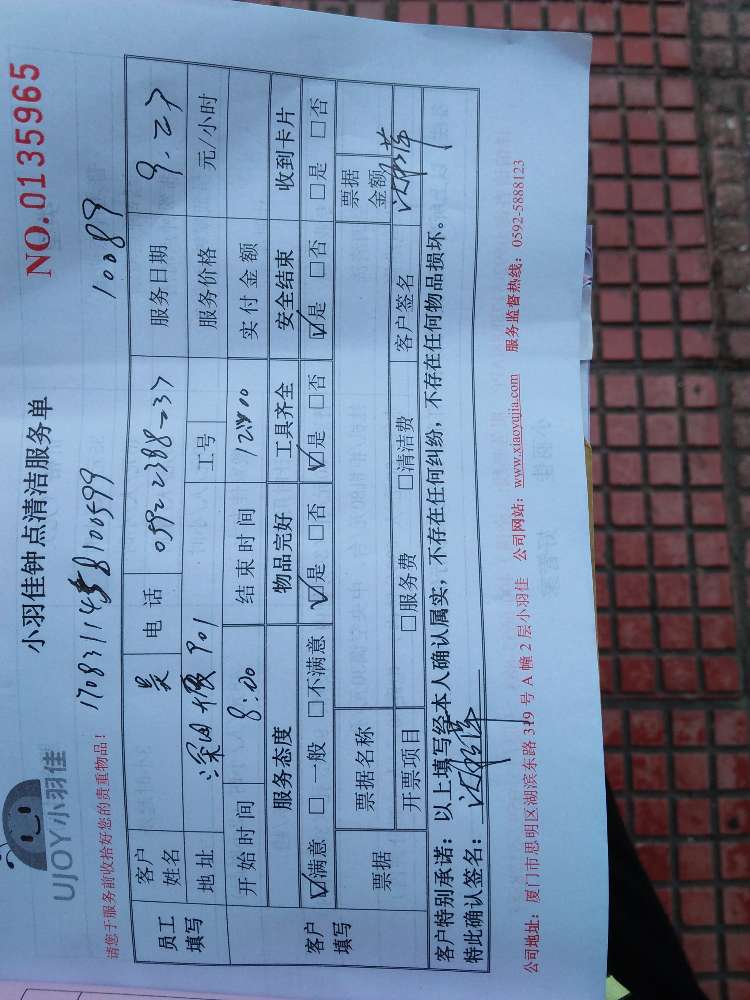 UJOY小羽佳
小羽佳钟点清洁服务单
NO.0135965
请您于服务前收拾好您的贵重物品!
10089
员工填写
客户姓名 吴 电话 服务日期 9.27
地址 901 工号 服务价格 元/小时
开始时间 8:00 结束时间 12:00 实付金额
客户填写
服务态度 物品完好 工具齐全 安全结束 收到卡片
☑满意 □一般 □不满意 ☑是 □否 ☑是 □否 ☑是 □否 □是 □否
票据 票据名称 票据金额
开票项目 □服务费 □清洁费 客户签名
客户特别承诺：以上填写经本人确认属实，不存在任何纠纷，不存在任何物品损坏。
特此确认签名：
公司地址：厦门市思明区湖滨东路319号A幢2层小羽佳 公司网站：www.xiaoyujia.com 服务监督热线：0592-5888123